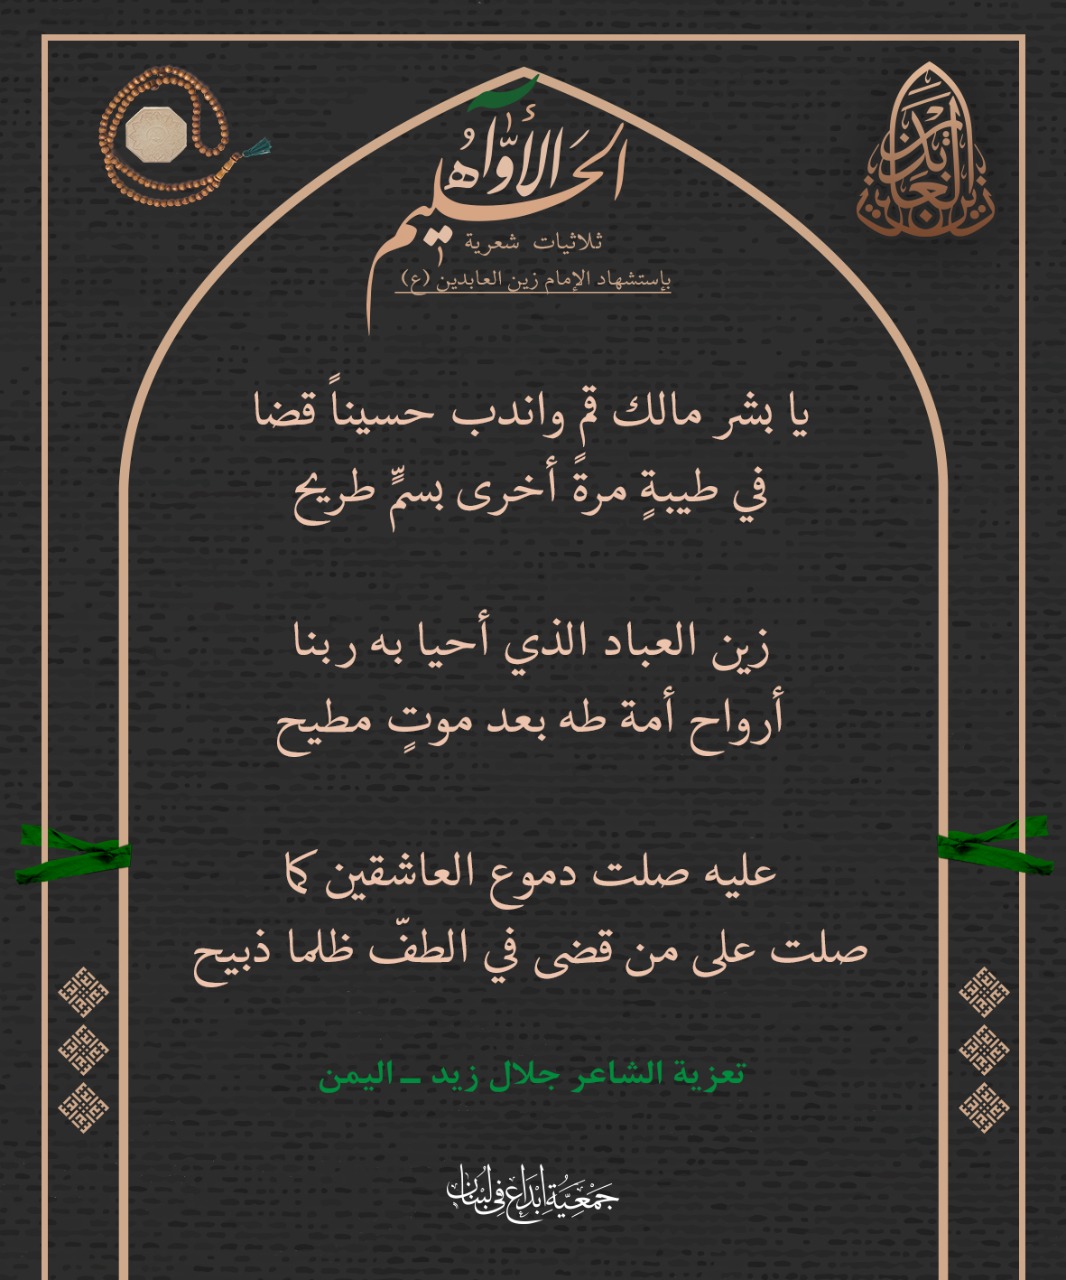 زين العابدين
الأوّاه الحليم
ثلاثيات شعرية
بإستشهاد الإمام زين العابدين (ع)
يا بشر مالك قمٍ واندب حسيناً قضا
في طيبةٍ مرة أخرى بسمٍّ طريح
زين العباد الذي أحيا به ربنا
أرواح أمة طه بعد موتٍ مطيح
عليه صلت دموع العاشقين كما
صلت على من قضى في الطفّ ظلما ذبيح
تعزية الشاعر جلال زيد ــ اليمن
جَمْعِيَّةُ إبْدَاع فِي لُبْنَان